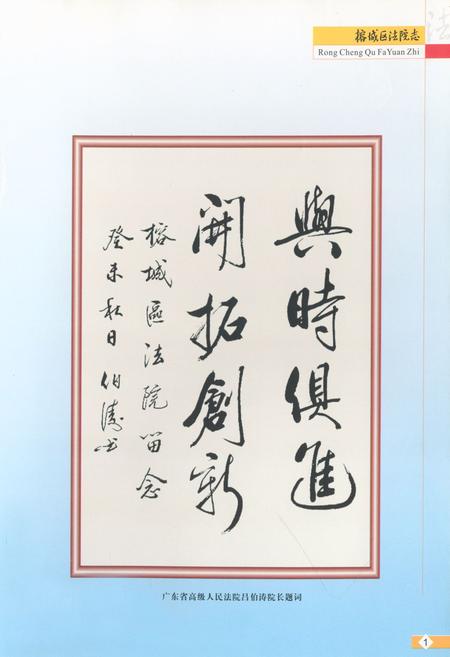 榕城区法院志
Rong Cheng Qu FaYuan Zhi
與時俱進
開拓創新
榕城區法院留念
癸未秋日伯濤书
广东省高级人民法院吕伯涛院长题词
1